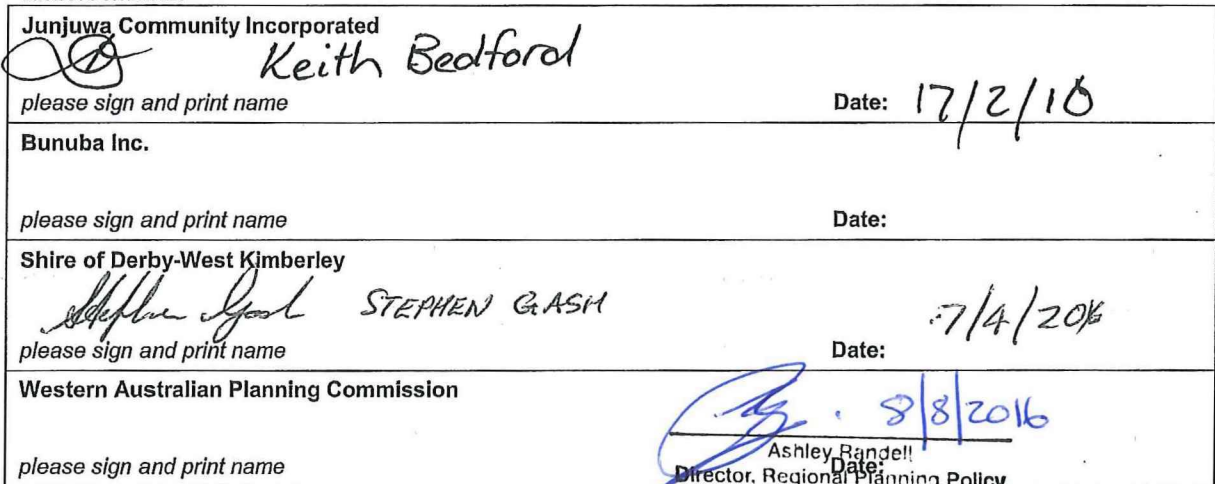 Junjuwa Community Incorporated
Keith Bedford
please sign and print name Date: 17/2/16
Bunuba Inc.
please sign and print name Date:
Shire of Derby-West Kimberley
Stephen Gash STEPHEN GASH
please sign and print name Date: 7/4/2016
Western Australian Planning Commission
8/8/2016
Ashley Randell
please sign and print name Date:
Director, Regional Planning Policy